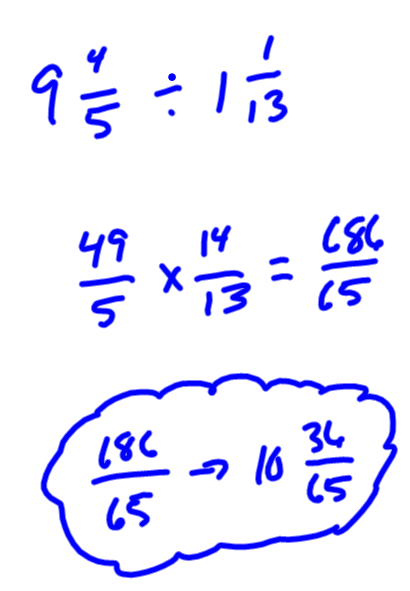 9 4/5 ÷ 1 1/13
49/5 x 14/13 = 686/65
686/65 → 10 36/65